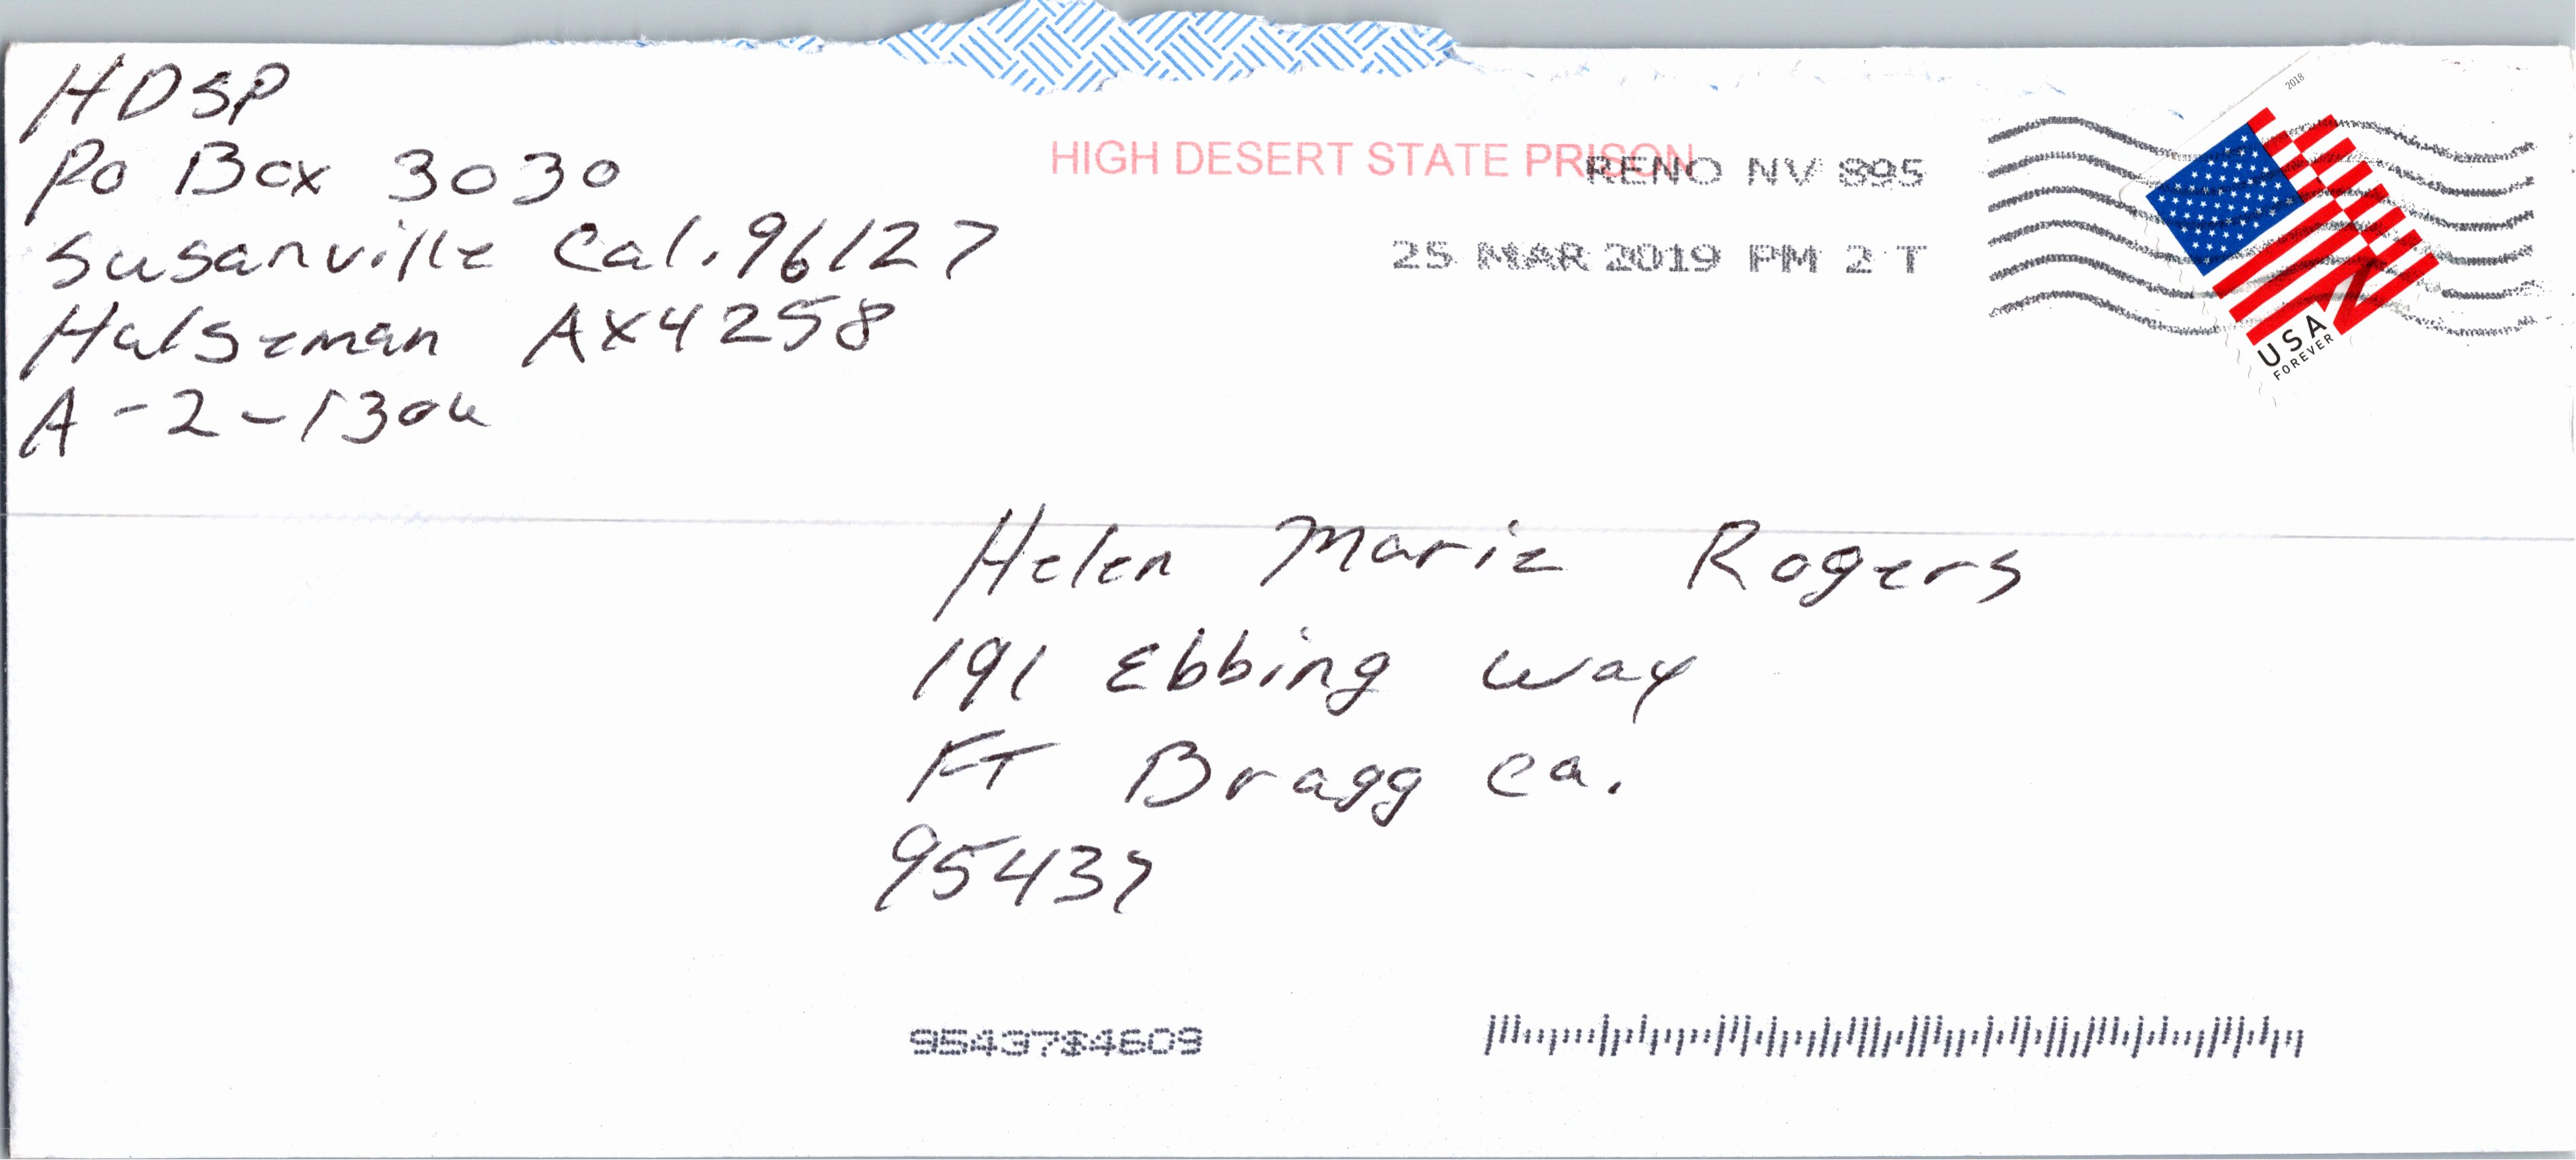 HDSP
Po Box 3030
Susanville Cal. 96127
Halseman AX4258
A-2-130u
HIGH DESERT STATE PRISON
RENO NV 895
25 MAR 2019 PM 2 T
2018
USA
FOREVER
Helen Marie Rogers
191 Ebbing Way
FT Bragg Ca.
95437
95437$4609